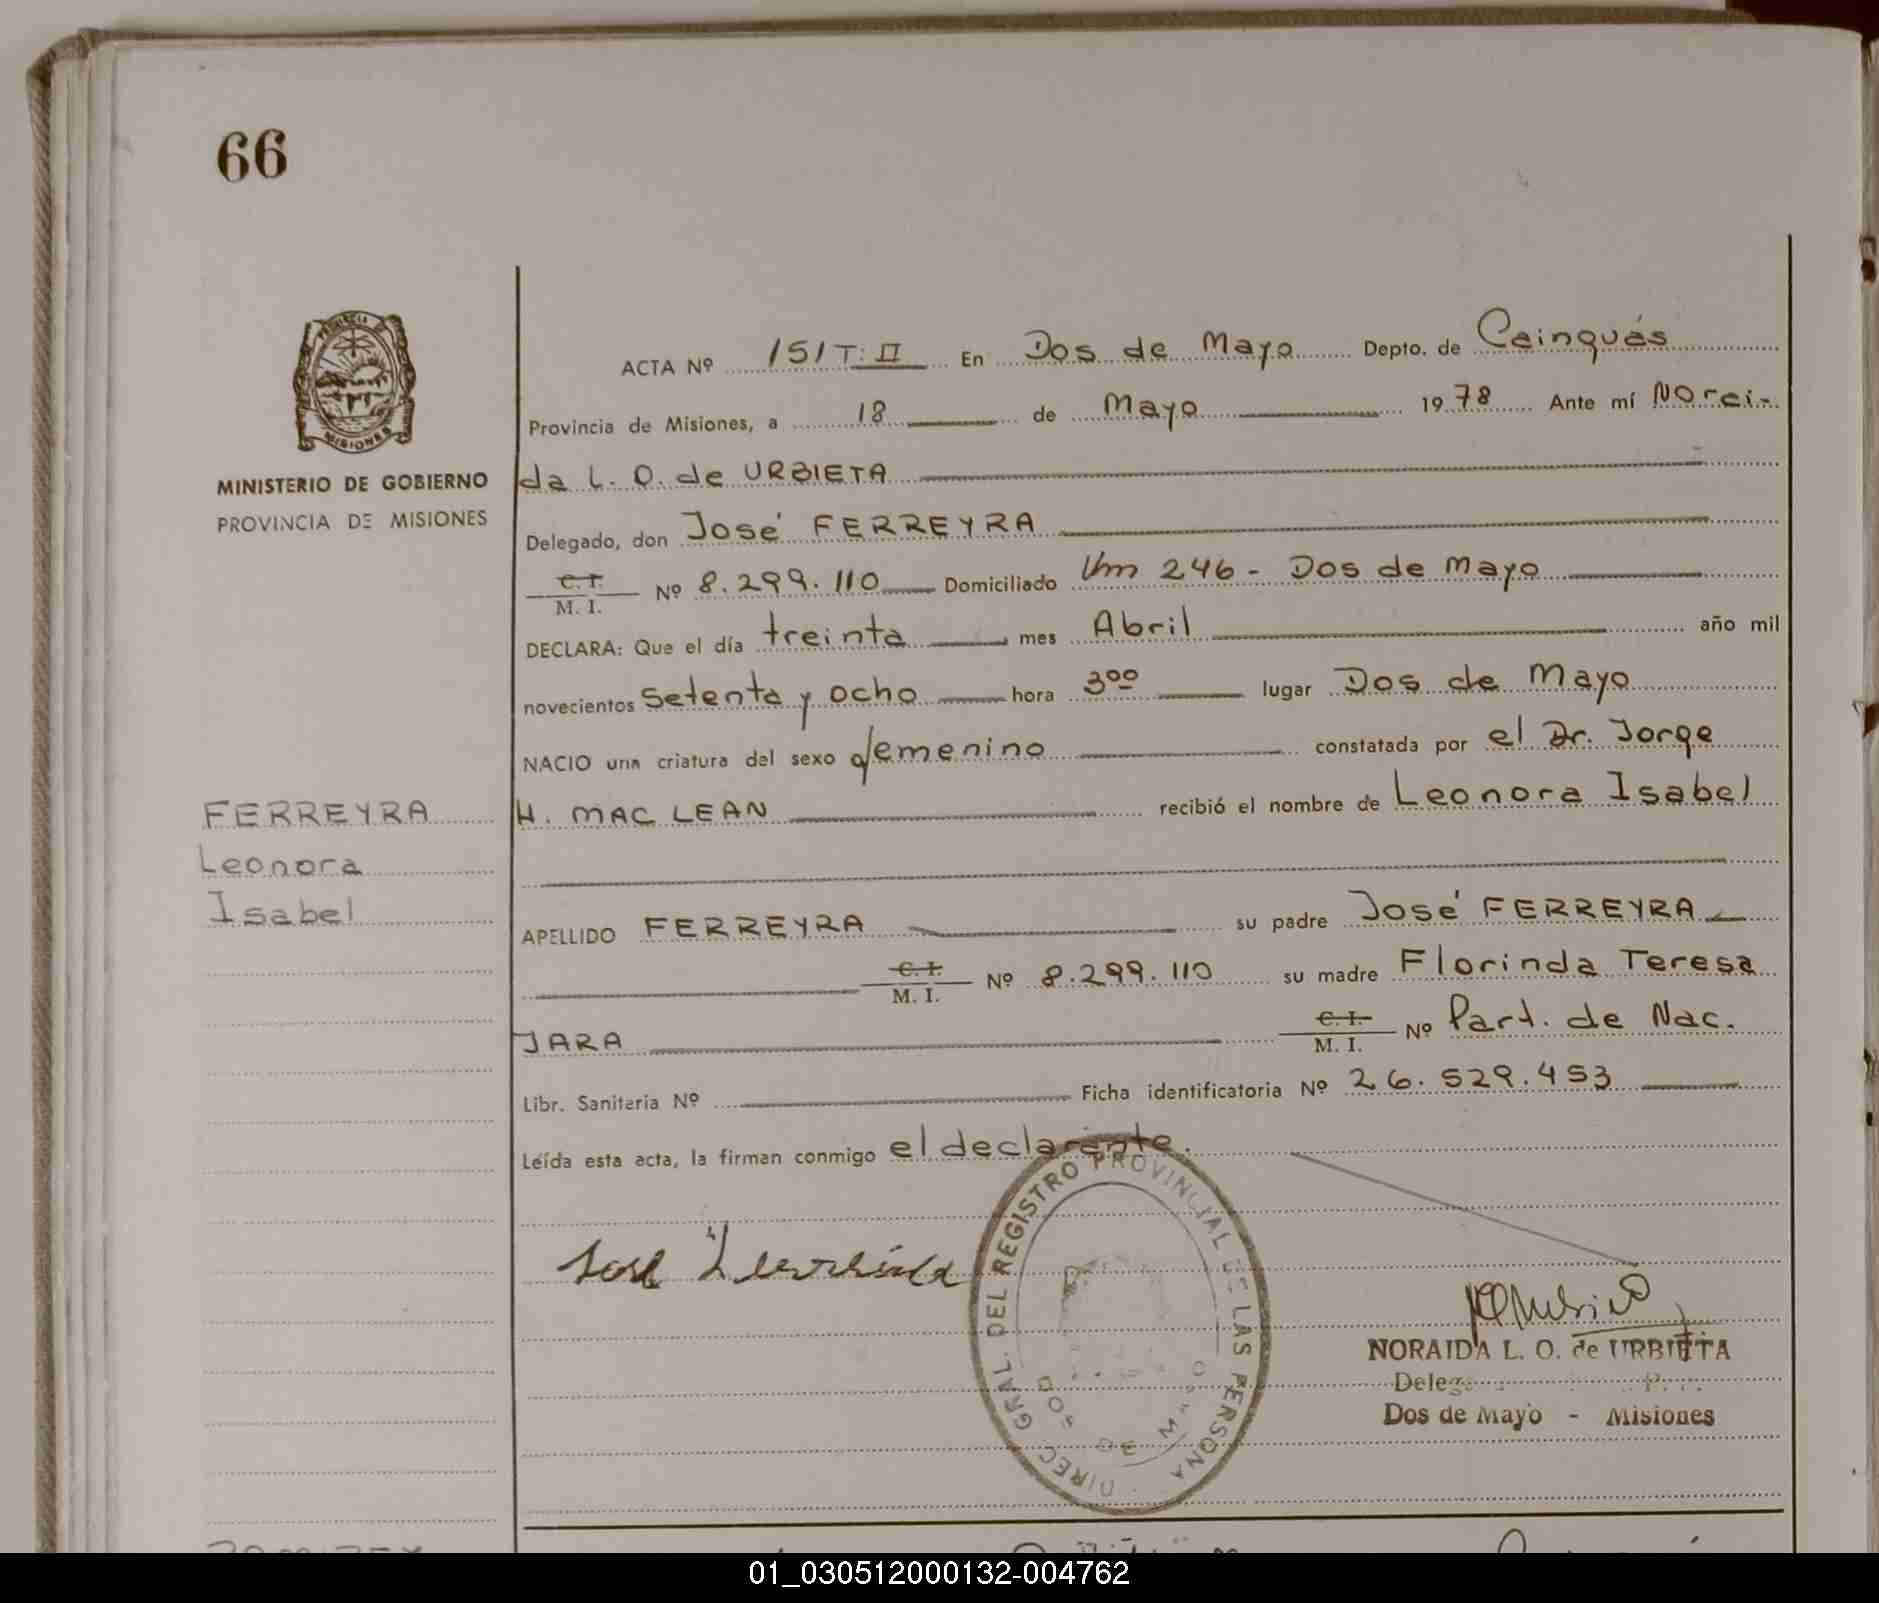 66
PROVINCIA DE
MISIONES
MINISTERIO DE GOBIERNO
PROVINCIA DE MISIONES
FERREYRA
Leonora
Isabel
ACTA Nº 151 T: II En Dos de Mayo Depto. de Cainguás
Provincia de Misiones, a 18 de Mayo 1978 Ante mí Norai-
da L. O. de URBIETA
Delegado, don José FERREYRA
C. I.
M. I. Nº 8.299.110 Domiciliado Km 246 - Dos de Mayo
DECLARA: Que el día treinta mes Abril año mil
novecientos setenta y ocho hora 3oo lugar Dos de Mayo
NACIO una criatura del sexo femenino constatada por el Dr. Jorge
H. MAC LEAN recibió el nombre de Leonora Isabel
APELLIDO FERREYRA su padre José FERREYRA
C. I.
M. I. Nº 8.299.110 su madre Florinda Teresa
JARA C. I.
M. I. Nº Part. de Nac.
Libr. Sanitaria Nº Ficha identificatoria Nº 26.529.453
Leída esta acta, la firman conmigo el declarante.
José Ferreira
DIREC. GRAL. DEL REGISTRO PROVINCIAL DE LAS PERSONA
DOS DE MAYO
NORAIDA L. O. de URBIETA
Dos de Mayo - Misiones
01_030512000132-004762